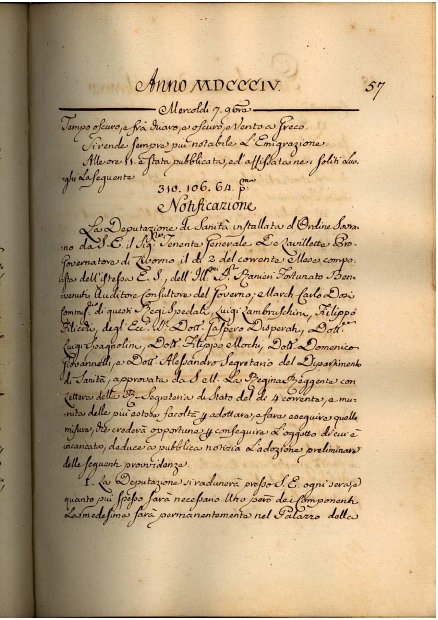 Anno MDCCCIV. 57
Mercoldì 7. 9bre
Tempo oscuro, e frà duavo, e oscuro, e Vento a Greco
Si rende sempre più notabile L'Emigrazione
Alle ore 11. è stata pubblicata, ed affissata ne i soliti Luo-
ghi La seguente
310. 106. 64. p:ma
Notificazione
La Deputazione di Sanità installata d'Ordine Sovra-
no da S. E. il Sig.re Tenente Generale De Lavillette Pro
Governatore di Livorno il dì 2 del corrente Mese compo-
sta dell'istessa E. S., dell' Ill.mo Sig.r Ranieri Fortunato Ben-
venuti Auditore Consultore del Governo, March. Carlo Dosi
Commiss.o di questi Regi Spedali, Luigi Lambruschini, Filippo
Filicchi, degl' Ecc.mi Dott. Gaspero Disperati, Dott.
Luigi Spagnolini, Dott. Filippo Mochi, Dott. Domenico
Giovannelli, e Dott. Alessandro Segretario del Dipartimento
di Sanità, approvata da S. M. La Regina Reggente con
Lettera della R. Segreteria di Stato del dì 4 corrente, e mu-
nita delle più estese facoltà p adottare, e fare eseguire quelle
misure, che crederà opportune p conseguire L'oggetto di cui è
incaricata, deduce a pubblica notizia L'adozione preliminare
delle seguenti provvidenze
1. La Deputazione si radunerà presso S. E. ogni sera, e
quanto più spesso sarà necessario Uno però dei Componenti
La medesima sarà permanentemente nel Palazzo della